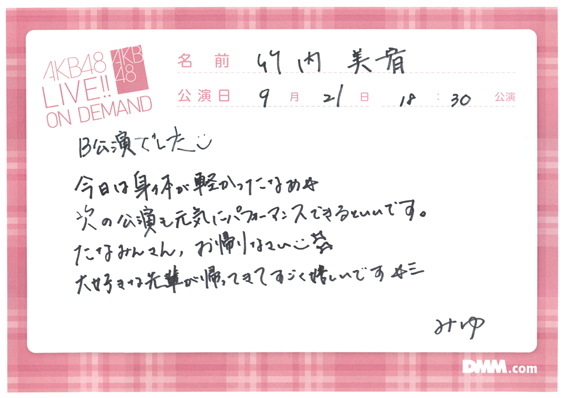 AKB48
LIVE!!
ON DEMAND
AKB
48
名前 竹内 美宥
公演日 9月21日 18:30 公演
B公演でした
今日は身体が軽かったなあ☆
次の公演も元気にパフォーマンスできるといいです。
たなみんさん、お帰りなさい
大好きな先輩が帰ってきてすごく嬉しいです☆三
みゆ
DMM.com